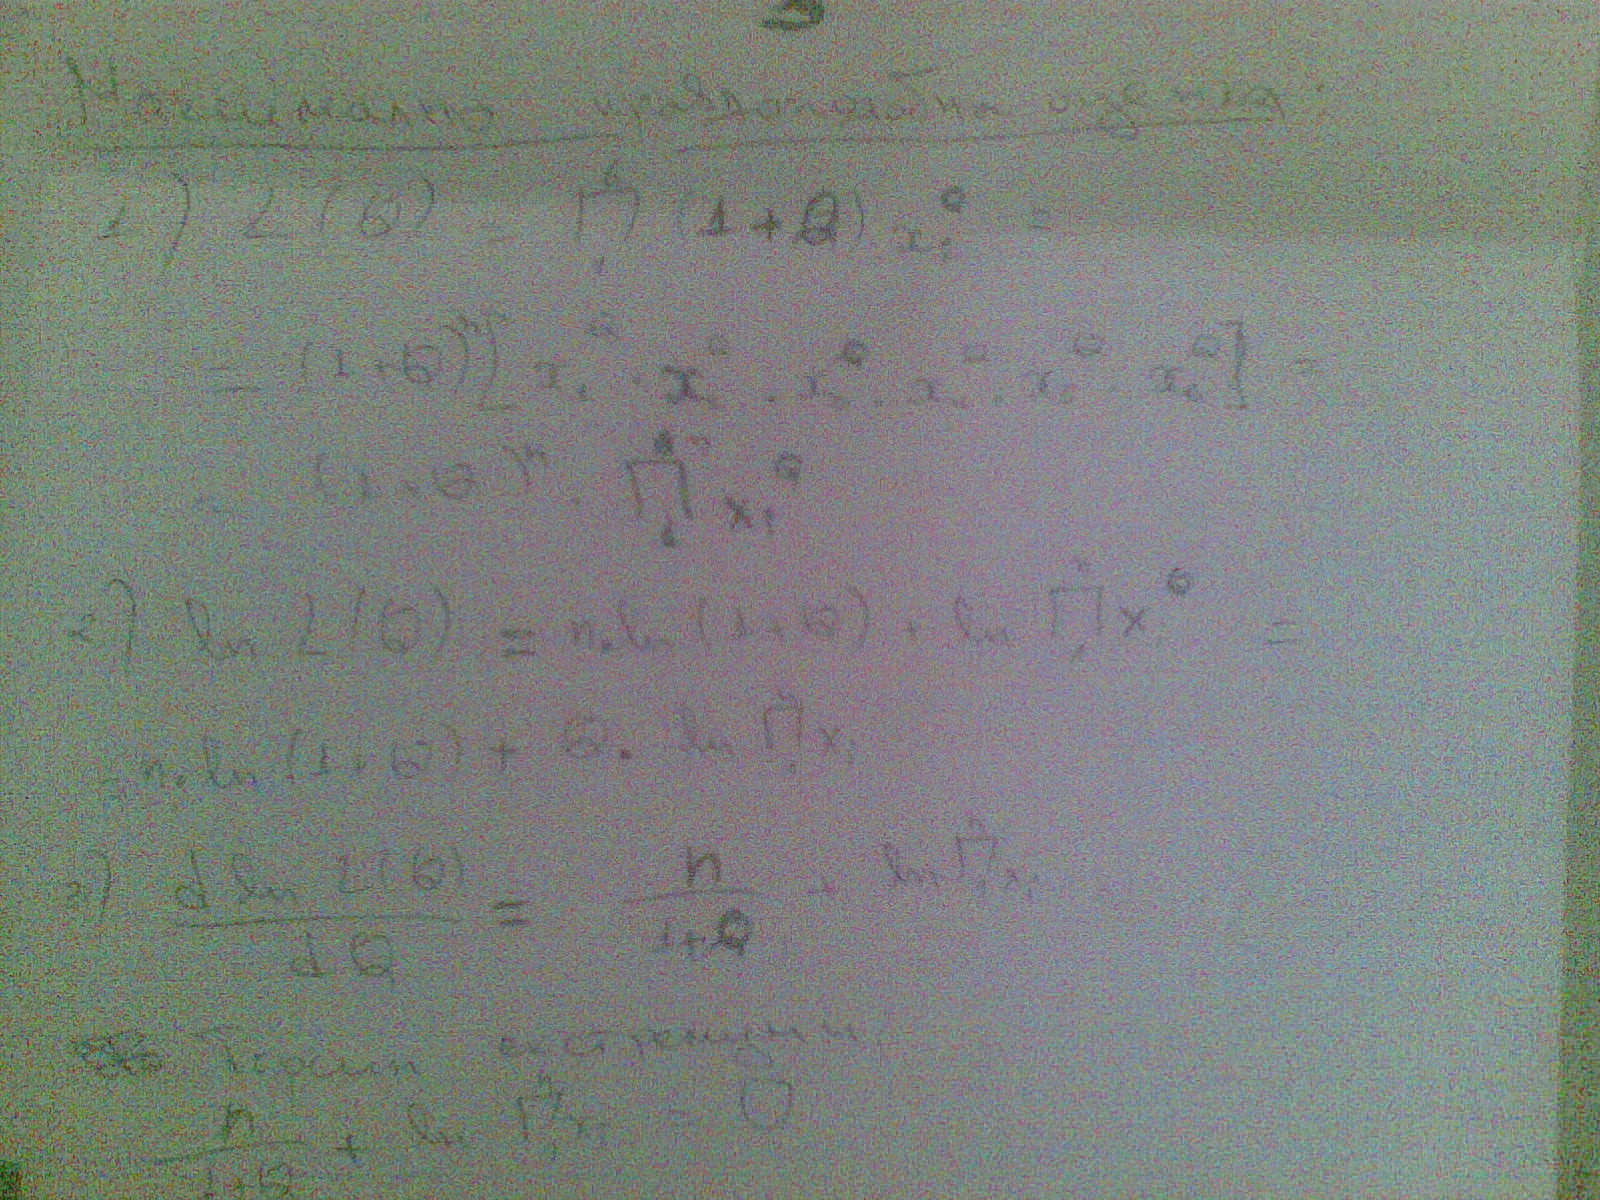 Максимално правдоподобна оценка:
1) L(θ) = ∏ⁿ₁ (1+θ).xᵢ^θ =
= (1+θ)ⁿ[x₁^θ . x^θ . x^θ . x^θ . x^θ . x^θ] =
= (1+θ)ⁿ . ∏ⁿ₁ xᵢ^θ
2) ln L(θ) = n.ln(1+θ) + ln ∏ⁿ₁ xᵢ^θ =
= n.ln(1+θ) + θ. ln ∏ⁿ₁ xᵢ
3) d ln L(θ) / dθ = n / 1+θ + ln ∏ⁿ₁ xᵢ
Търсим екстремуми:
n / 1+θ + ln ∏ⁿ₁ xᵢ = 0